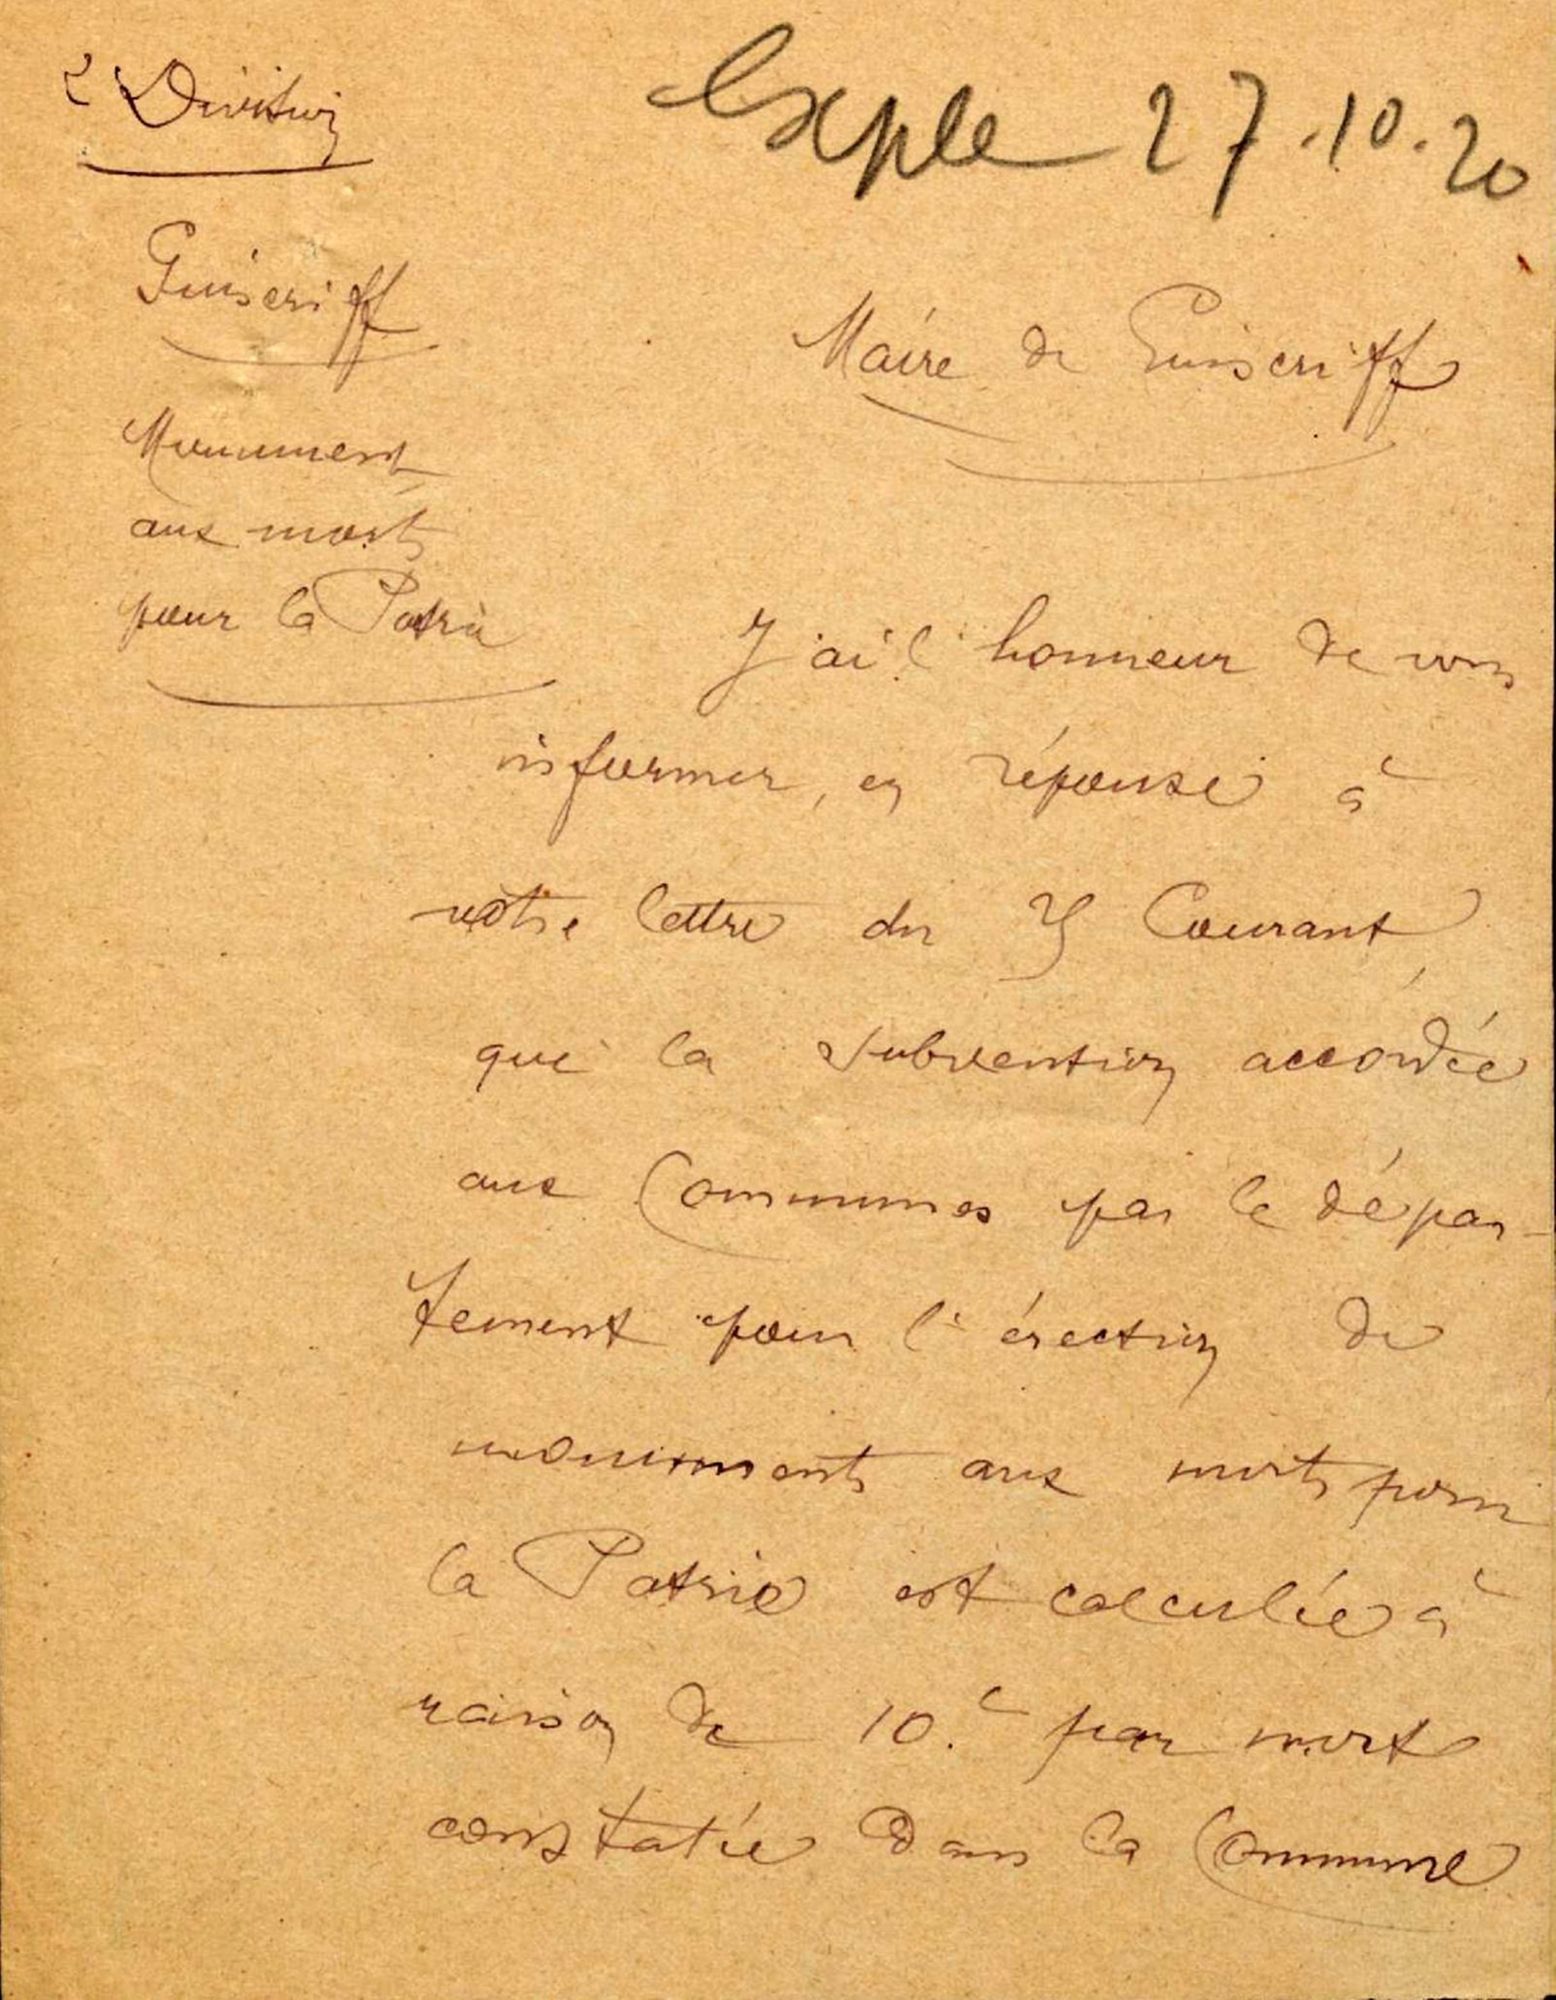 2 Division
Exple 27.10.20
Guiscriff
Maire de Guiscriff
Monument
aux morts
pour la Patrie
J'ai l'honneur de vous
informer, en réponse à
votre lettre du courant
que la subvention accordée
aux Communes par le dépar-
tement pour l'érection de
monuments aux morts pour
la Patrie est calculée à
raison de 10. par mort
constatée dans la Commune